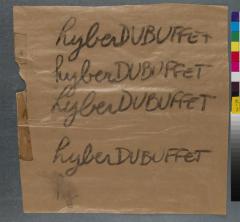 hyberDUBUFFET
hyberDUBUFFET
hyberDUBUFFET
hyberDUBUFFET